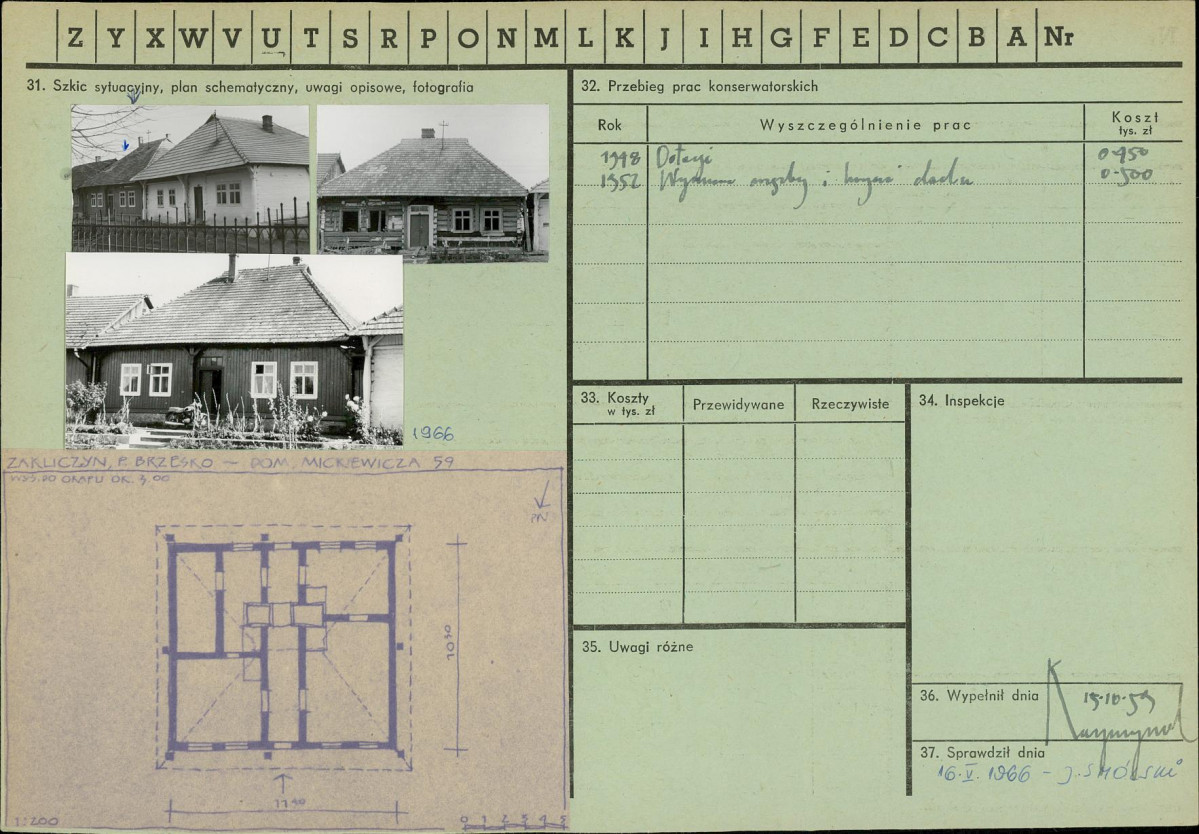 Z Y X W V U T S R P O N M L K J I H G F E D C B A Nr
31. Szkic sytuacyjny, plan schematyczny, uwagi opisowe, fotografia
1966
ZAKLICZYN, P. BRZESKO — DOM, MICKIEWICZA 59
WYS. DO OKAPU OK. 3,00
PN
1030
1140
1:200
0 1 2 3 4 5
32. Przebieg prac konserwatorskich
Rok Wyszczególnienie prac Koszt
tys. zł
1948 Dotacji 0.450
1952 i dachu 0.500
33. Koszty w tys. zł Przewidywane Rzeczywiste
34. Inspekcje
35. Uwagi różne
36. Wypełnił dnia 15.10.59
37. Sprawdził dnia
16.V.1966 – J. SMÓLSKI